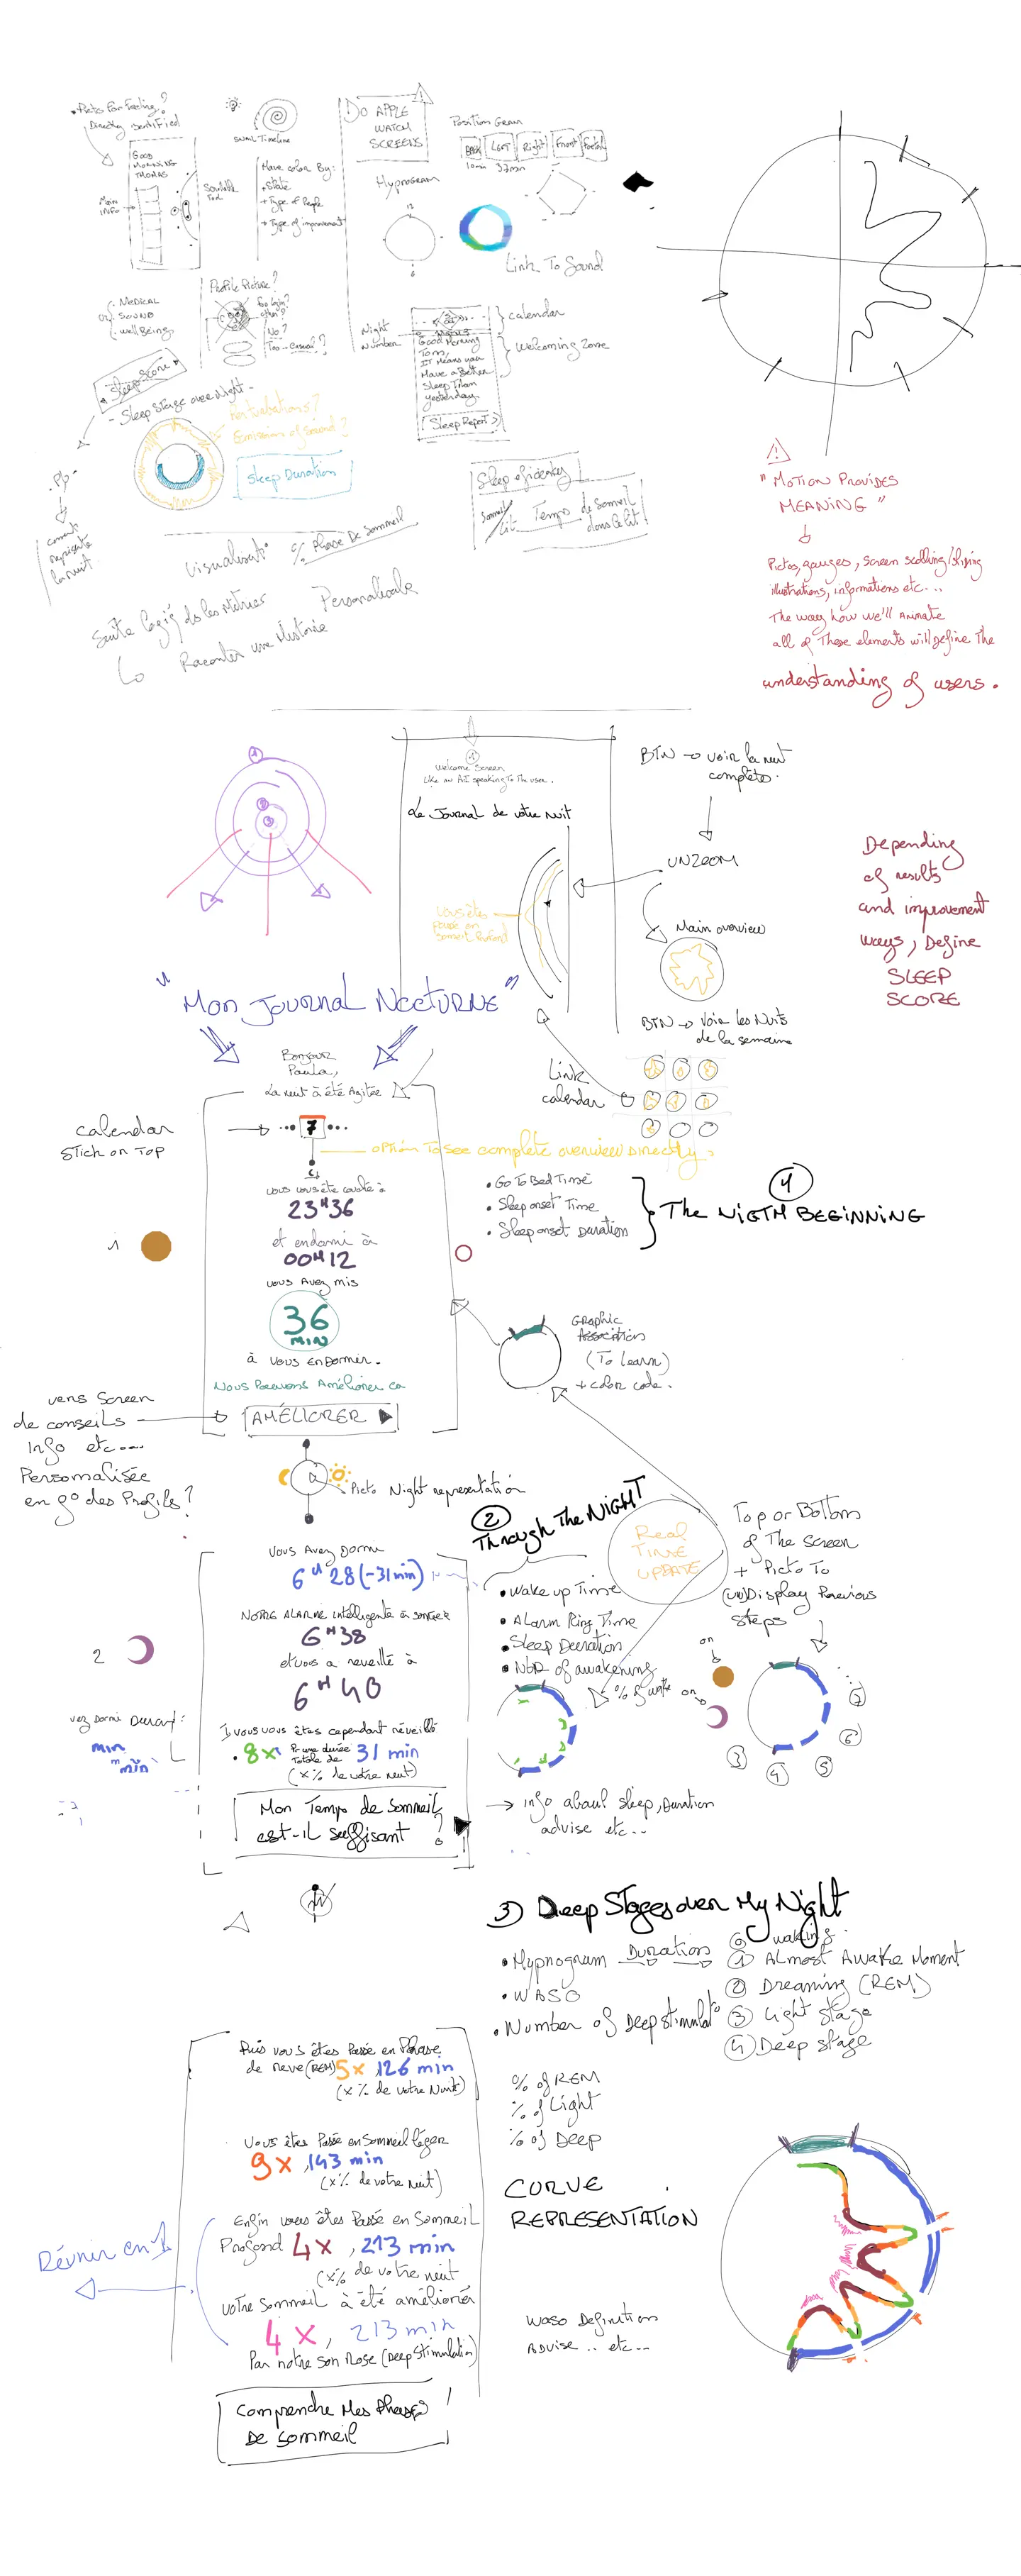 Pictos For Feeling?
Directly identified
GOOD
MORNING
THOMAS
Main
INFO
Scrollable
Tool
SNAIL Timeline
Have color By:
+ State
+ Type of People
+ Type of improvement
DO APPLE
WATCH
SCREENS
HYPNOGRAM
12
6
Position Gram
BACK
LEFT
Right
Front
10min 37min
Link To Sound
MEDICAL
OR SOUND
well Being
Profile Picture?
No?
Too Casual?
Night
Number
Good Morning
Tom,
IT Means you
Have a Better
Sleep Than
yesterday.
Sleep Report >
calendar
Welcoming Zone
"Sleep Score"
- Sleep Stage over Night -
Perturbations?
Emission of Sound?
Sleep Duration
Pb.
comment
représenter
la nuit.
Sleep efficiency
Sommeil/Lit
Temps de Sommeil
dans le lit
Visualisat° % Phase De Sommeil
Personalisable
Raconter une Histoire
"MOTION PROVIDES
MEANING"
Pictos, gauges, screen scrolling/sliding
illustrations, informations etc...
The way how we'll Animate
all of These elements will define The
understanding of users.
1
welcome Screen
Like an A.I speaking To The user.
Le Journal de votre nuit
Vous êtes
passé en
sommeil Profond
BTN → voir la nuit
complète.
UNZOOM
Main overview
BTN → Voir les Nuits
de la semaine
Link
calendar
Depending
of results
and improvement
ways, Define
SLEEP
SCORE
1
2
3
"MON JOURNAL NOCTURNE"
Bonjour
Paula,
La nuit à été Agitée
calendar
STICK ON TOP
7
OPTION TO SEE complete overview DIRECTLY.
vous vous été couché à
23H36
et endormi à
00H12
vous Avez mis
36
MIN
à vous endormir.
Nous Pouvons Améliorer ça
AMÉLIORER
1
• Go To Bed Time
• Sleep onset Time
• Sleep onset Duration
1
The NIGTH BEGINNING
GRAPHIC
Association
(To Learn)
+ color code.
vers Screen
de conseils
Info etc...
Personalisée
en f° des Profils?
Picto Night representation
2
Through The NIGHT
Real
TIME
UPDATE
Top or Bottom
of The Screen
+ Picto To
(un)Display Previous
steps
• Wake up Time
• Alarm Ring Time
• Sleep Duration
• NBR of awakening
% of wake
on
on
3
4
5
6
7
Vous Avez Dormi
6H28 (-31min)
NOTRE ALARME intelligente à sonnée
6H38
et vous a reveillé à
6H40
2
min
min
vous vous êtes cependant réveillé
8x P. une durée
Totale de 31 min
(x% de votre nuit)
Mon Temps de Sommeil
est-il suffisant ?
→ info about sleep, Duration
advise etc...
3) Deep Stages over My Night
• Hypnogram Duration
• WASO
• Number of Deep stimulat°
0 waking
1 Almost Awake Moment
2 Dreaming (REM)
3 Light Stage
4 Deep stage
% of REM
% of Light
% of Deep
CURVE
REPRESENTATION
WASO Definition
Advise .. etc...
Puis vous êtes Passé en Phase
de reve (REM) 5x, 126 min
(x% de votre Nuit)
Vous êtes Passé en sommeil léger
9x, 143 min
(x% de votre nuit)
Enfin vous êtes Passé en Sommeil
Profond 4x, 213 min
(x% de votre nuit
votre sommeil à été amélioré
4x, 213 min
Par notre son Rose (Deep Stimulation)
Réunir en 1
Comprendre Mes Phases
De sommeil